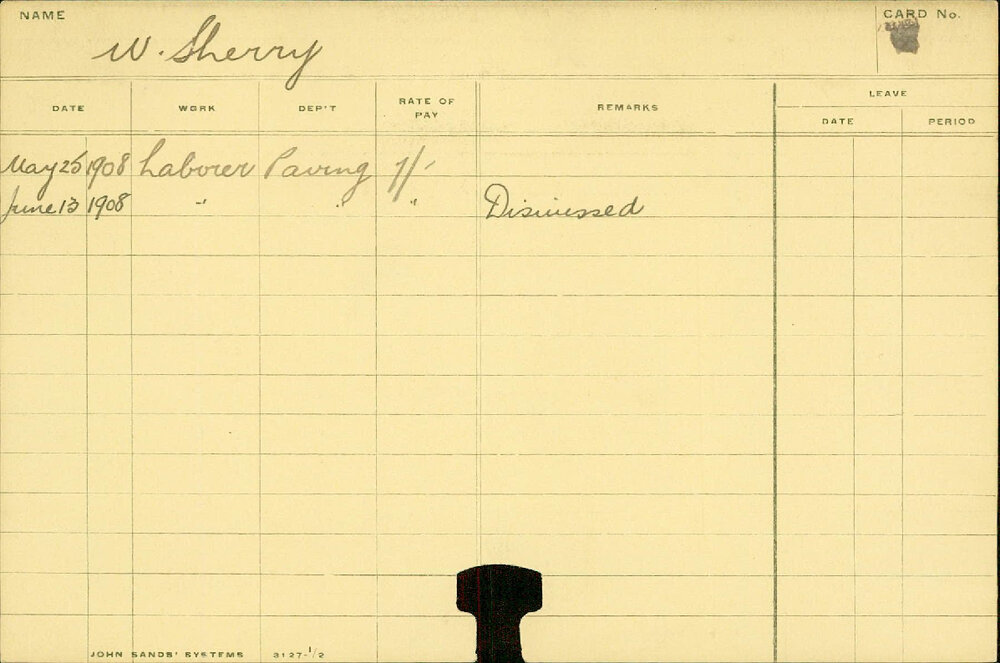 NAME
CARD No.
W. Sherry
DATE WORK DEP'T RATE OF PAY REMARKS LEAVE
DATE PERIOD
May 25 1908 Laborer Paving 7/-
June 13 1908 " " " Dismissed
JOHN SANDS' SYSTEMS 3127-1/2